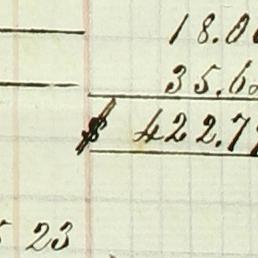 18.0
35.6
$ 422.7
23